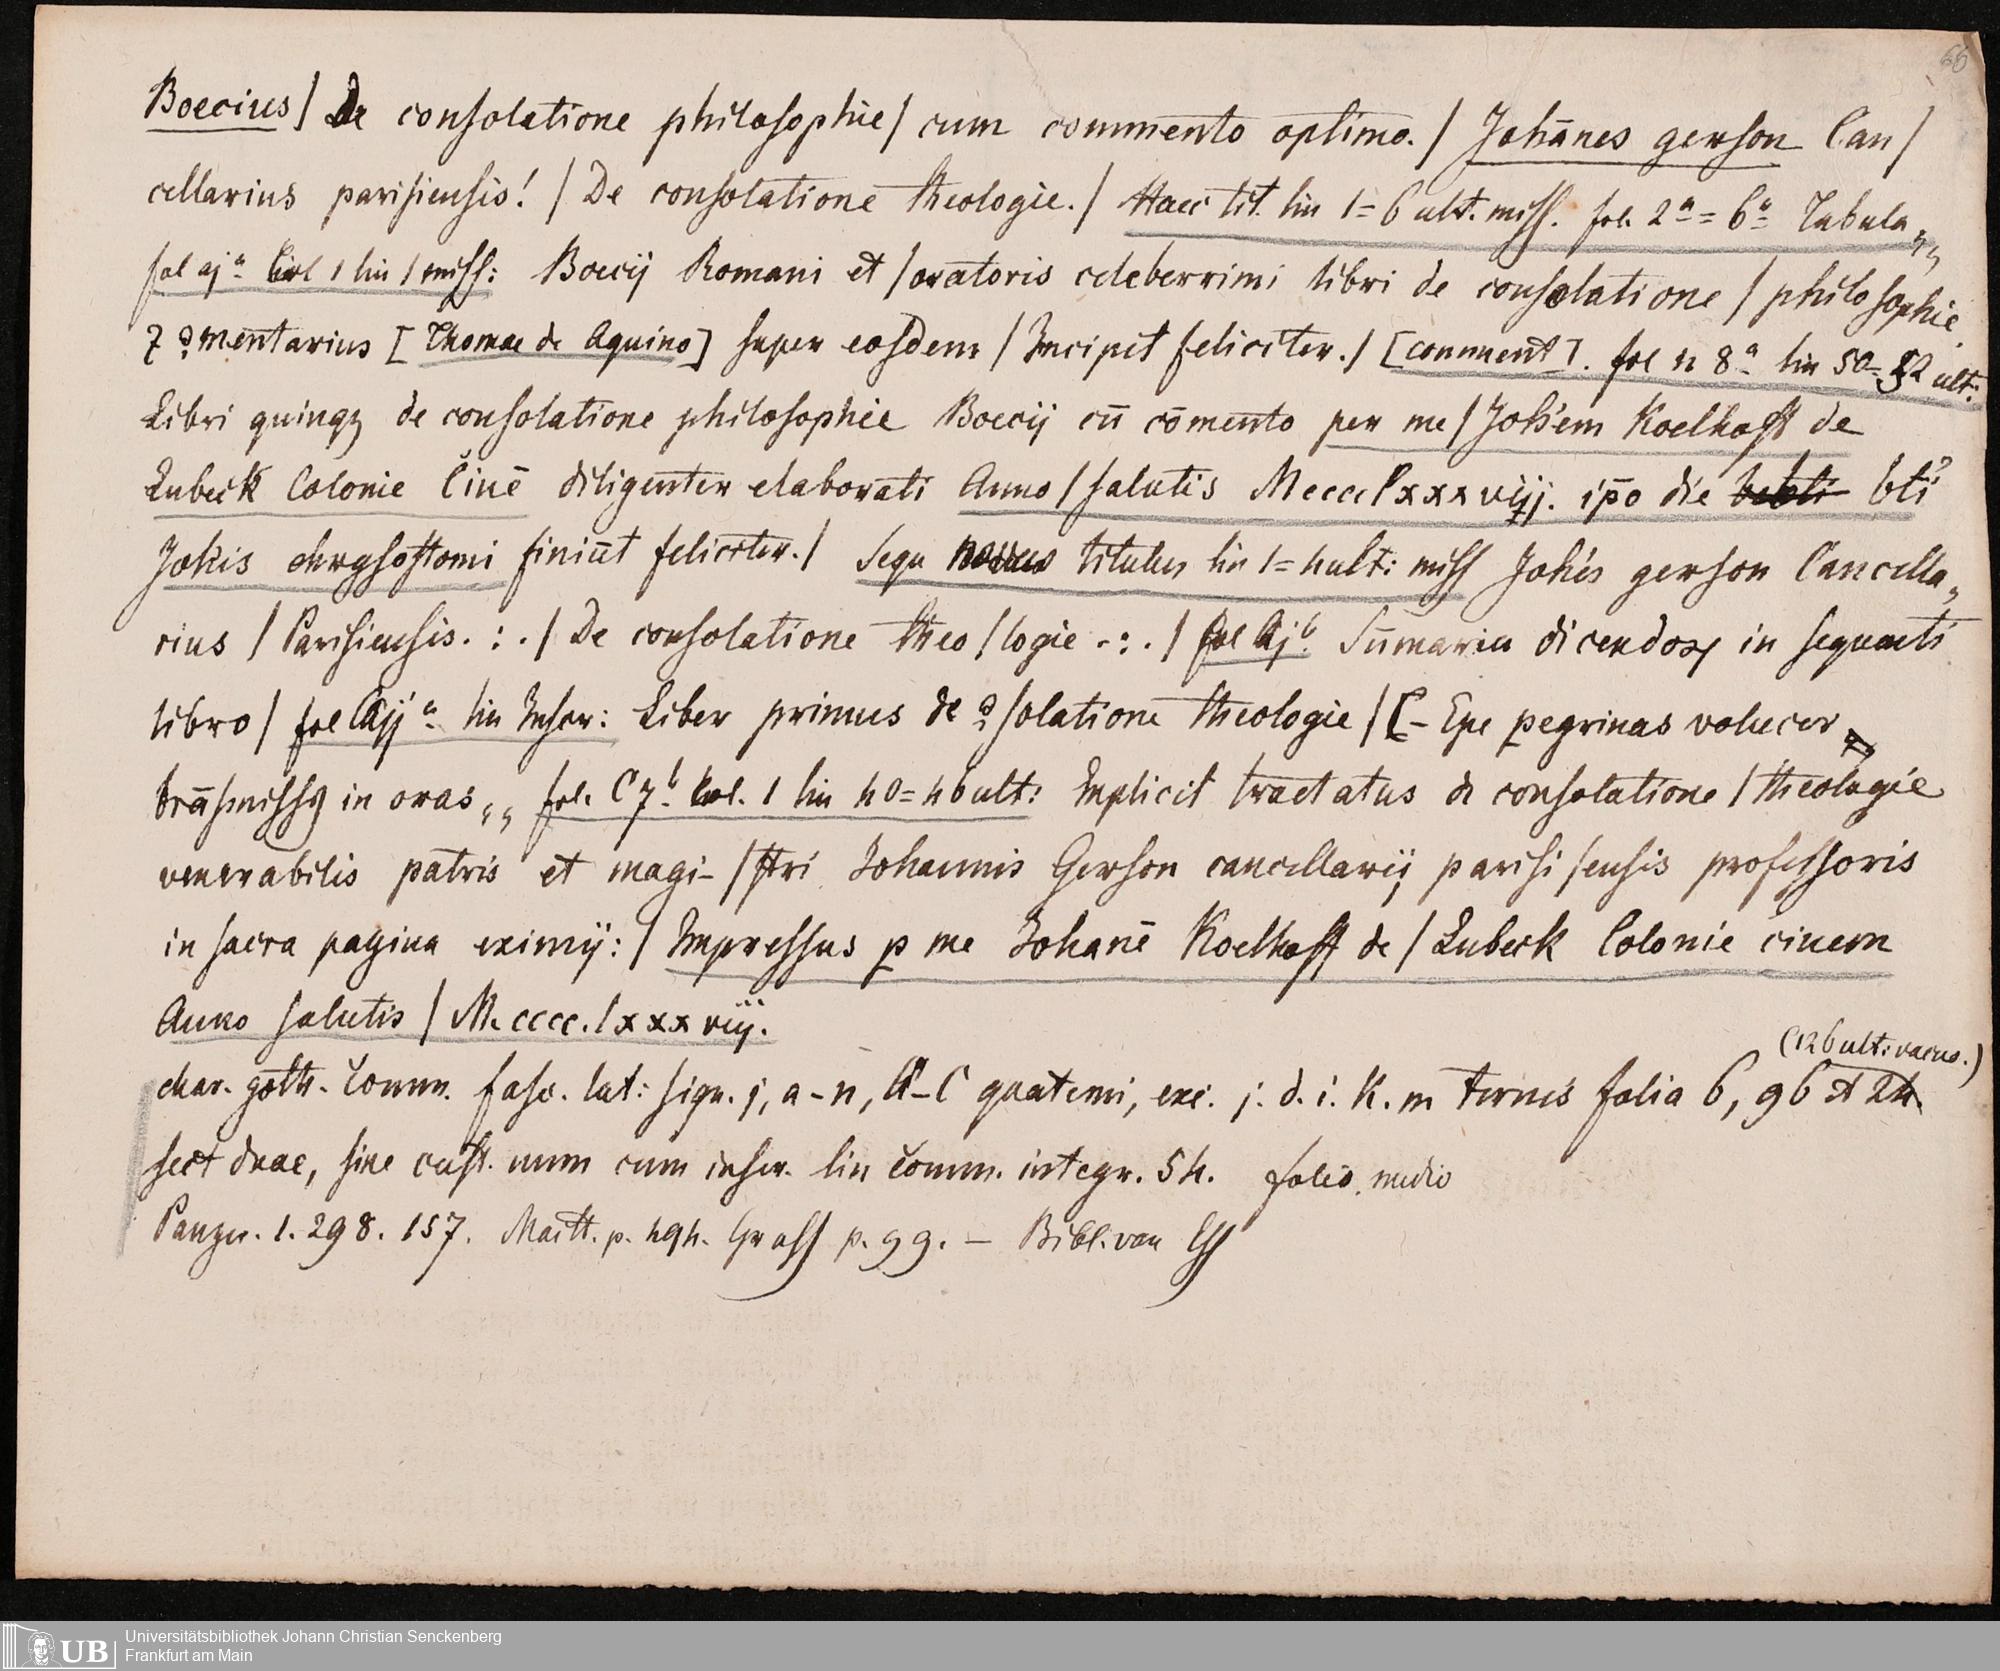 66
Boecius / De consolatione philosophie / cum commento optimo. / Johānes gerson Can /
cellarius parisiensis! / De consolatione theologie. / Haec tit. lin 1=6 ult. miss. fol. 2ª = 6ª Tabula „
fol aj ª Col 1 lin 1 miss: Boecij Romani et / oratoris celeberrimi libri de consolatione / philosophie
7 ꝯmentarius [Thomae de Aquino] super eosdem / Incipit feliciter. / [comment]. fol n 8ª lin 50=52 ult:
Libri quinqȝ de consolatione philosophie Boecij cū cōmento per me / Joh'em Koelhoff de
Lubeck Colonie Ciuē diligenter elaborati Anno / salutis Mcccclxxxviij. ip̄o die bti
Johis chrysostomi finiūt feliciter. / Sequ novus titulus lin 1=4 ult: miss Johēs gerson Cancella„
rius / Parisiensis. : . / De consolatione theo / logie . : . / fol Aj b. Sūmaria dicendoꝝ in sequenti
libro / fol Aijª lin Inscr: Liber primus de ꝯ / solatione theologie / [– Epe pegrinas volucer „
trāsmissꝰ in oras „ fol. C 7 b Col. 1 lin 40=46 ult: Explicit tractatus de consolatione / theologie
venerabilis patris et magi– / stri Johannis Gerson cancellarij parisi / ensis professoris
in sacra pagina eximij: / Impressus p me Johanē Koelhoff de / Lubeck Colonie ciuem
Anno salutis / M.cccc.lxxxviij.
(12 b ult: vacuo.)
char. goth. Comm. fasc. lat: sign. j, a–n, A–C quaterni, exc. j. d. i. K. m ternis folia 6, 96 et 24
sect duae, sine cust. num cum inscr. lin Comm. integr. 54. folio medio
Panzer. 1. 298. 157. Maitt. p. 494. Grass p. 99. – Bibl. van Ess
UB Universitätsbibliothek Johann Christian Senckenberg
Frankfurt am Main